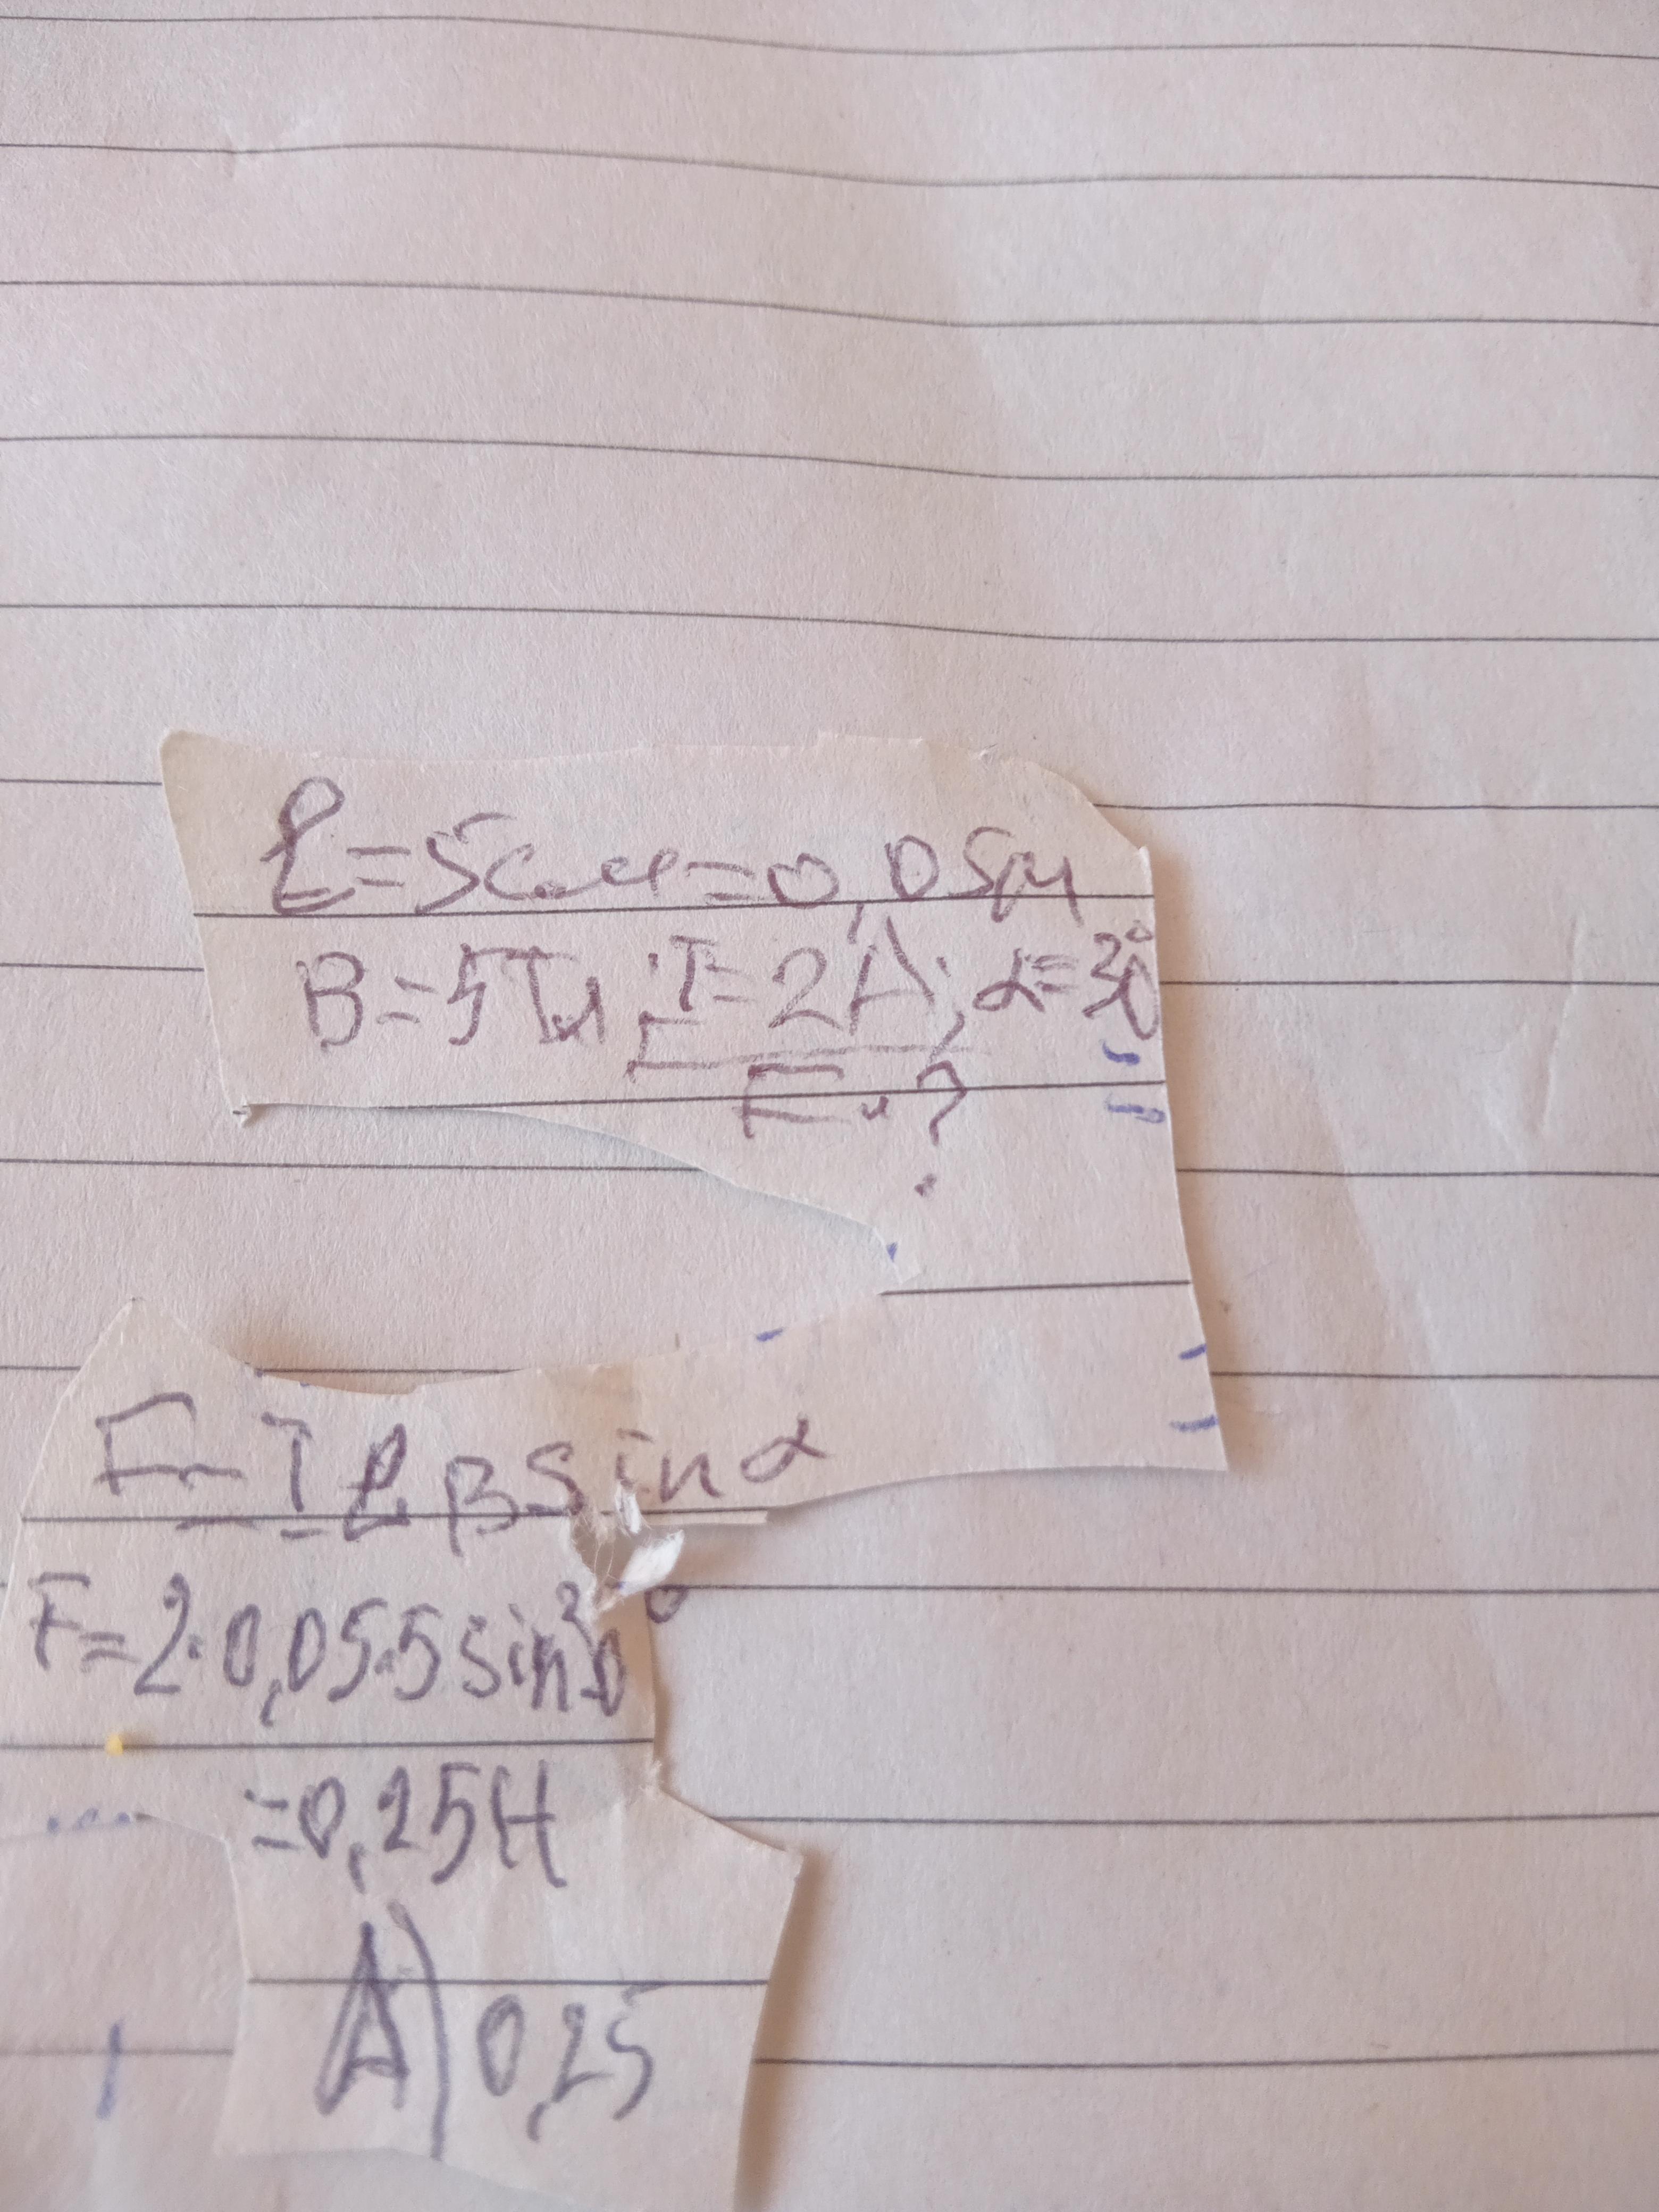 ℓ=5см=0,05м
B=5Тл; I=2A; α=30°
F-?
F=IℓBsinα
F=2·0,05·5sin30°
=0,25H
A) 0,25